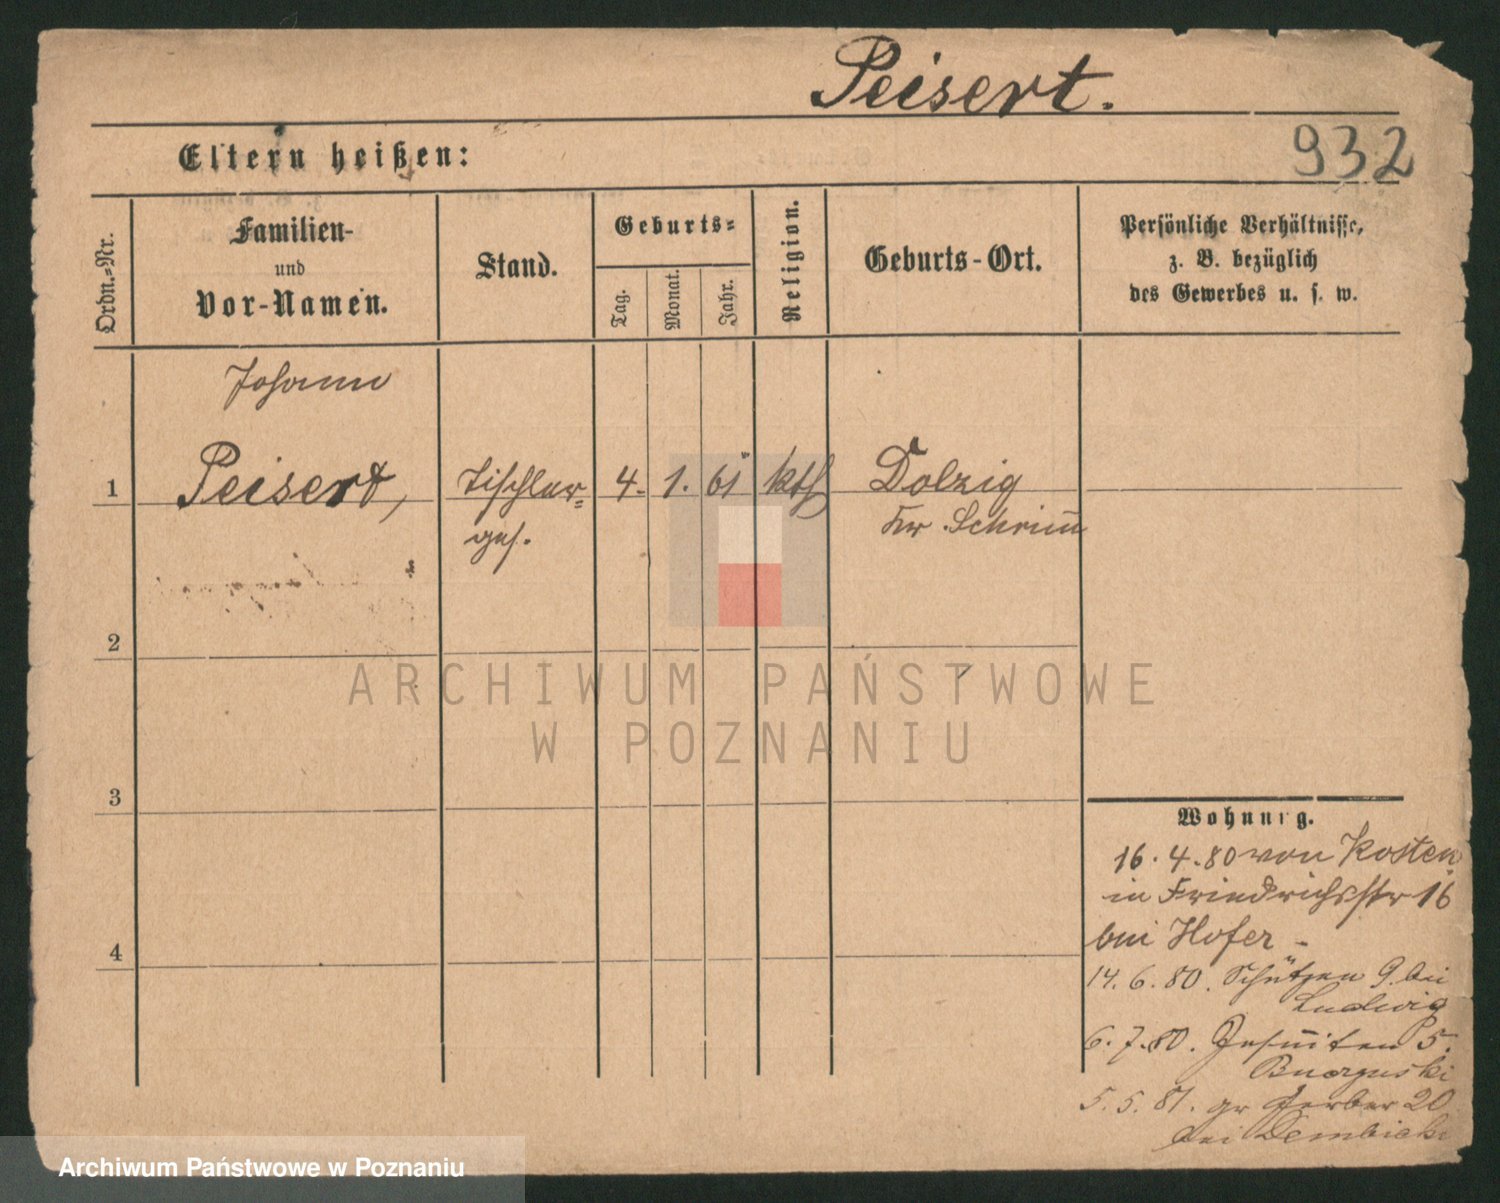 Peisert.
932
Eltern heißen:
Ordn.-Nr.
Familien-
und
Vor-Namen.
Stand.
Geburts-
Tag.
Monat.
Jahr.
Religion.
Geburts-Ort.
Persönliche Verhältnisse,
z. B. bezüglich
des Gewerbes u. s. w.
Johann
1 Peisert, Tischler- 4. 1. 61 kth Dolzig
ges. Kr. Schrim̄
2
3
4
ARCHIWUM PAŃSTWOWE
W POZNANIU
Wohnung.
16. 4. 80 von Kosten
in Friedrichsstr 16
bei Hofer -
14. 6. 80. Schützen 9. bei
Ludwig
6. 7. 80. Jesuiten 5.
5. 5. 81. gr Gerber 20
bei Dembicki
Archiwum Państwowe w Poznaniu